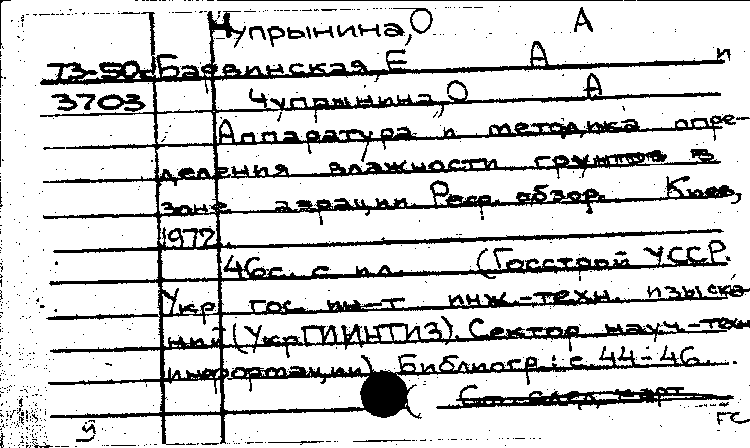 Чупрынина, О А
73-50- Баевинская, Е А и
3703 Чупрынина, О А
Аппаратура и методика опре-
деления влажности грунтов в
зоне аэрации. Реф. обзор. Киев,
1972.
46с. с ил. (Госстрой УССР.
Укр гос. ин-т инж.-техн. изыска-
ний (УкрГИИНТИЗ). Сектор науч.-техн
информации) Библиогр.: с. 44-46.
( См. след. карт.
9 ГС